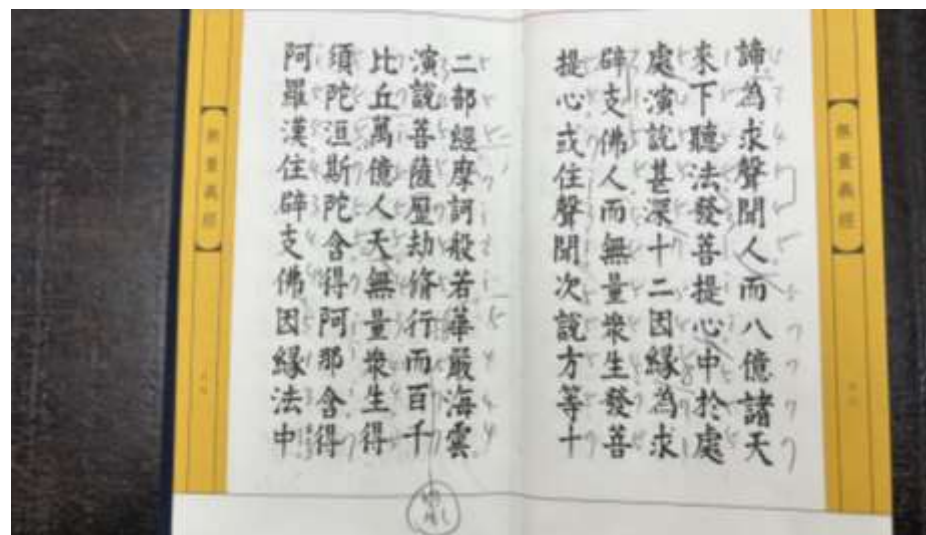 無量義經
諦為求聲聞人而八億諸天
來下聽法發菩提心中於處
處演說甚深十二因緣為求
辟支佛人而無量衆生發菩
提心或住聲聞次說方等十
二部經摩訶般若華嚴海雲
演說菩薩歷劫脩行而百千
比丘萬億人天無量衆生得
須陀洹斯陀含得阿那含得
阿羅漢住辟支佛因緣法中
無量義經